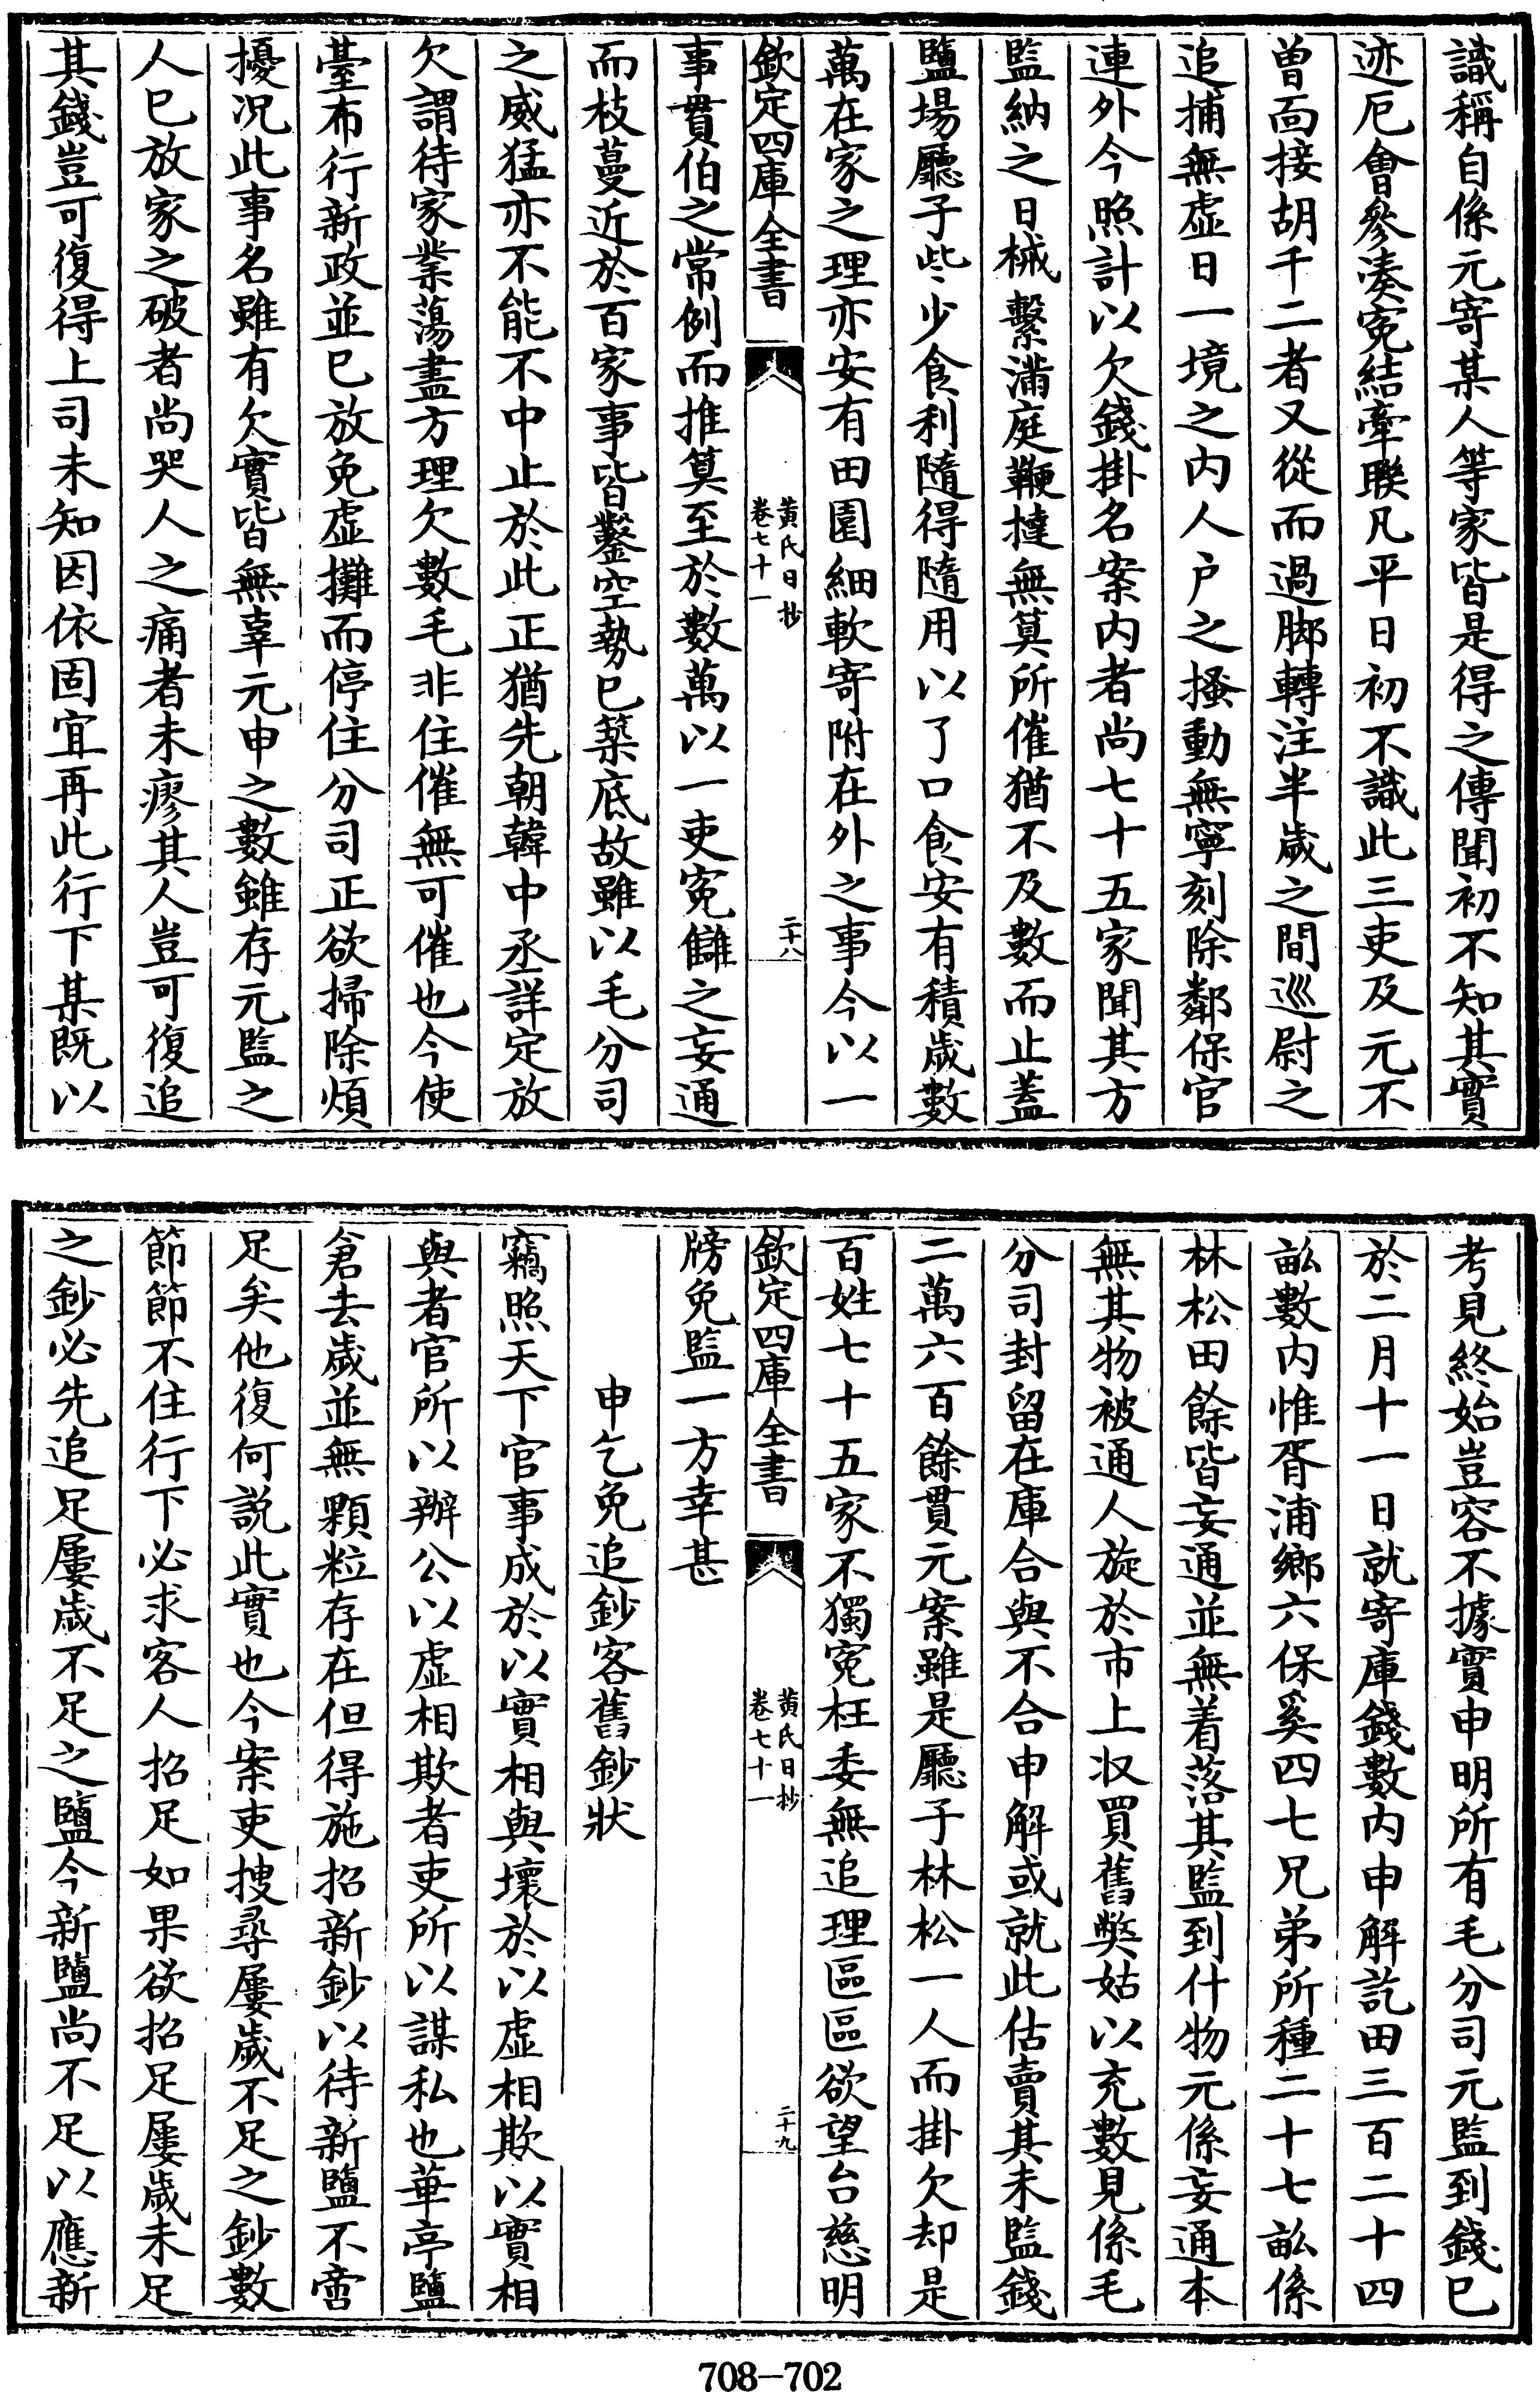 識稱自係元寄某人等家皆是得之傳聞初不知其實
迹厄會參湊寃結牽聯凡平日初不識此三吏及元不
曽面接胡千二者又從而過脚轉注半歲之間巡尉之
追捕無虚日一境之内人户之掻動無寧刻除鄰保官
連外今照計以欠錢掛名案内者尚七十五家聞其方
監納之日械繫滿庭鞭撻無算所催猶不及數而止蓋
鹽場廳子些少食利隨得隨用以了口食安有積歲數
萬在家之理亦安有田園細軟寄附在外之事今以一
欽定四庫全書
黄氏日抄
卷七十一
二十八
事貫伯之常例而推算至於數萬以一吏寃讎之妄通
而枝蔓近於百家事皆鑿空勢已築底故雖以毛分司
之威猛亦不能不中止於此正猶先朝韓中丞詳定放
欠謂待家業蕩盡方理欠數毛非住催無可催也今使
臺布行新政並已放免虚攤而停住分司正欲掃除煩
擾况此事名雖有欠實皆無辜元申之數雖存元監之
人已放家之破者尚哭人之痛者未瘳其人豈可復追
其錢豈可復得上司未知因依固宜再此行下某既以
考見終始豈容不據實申明所有毛分司元監到錢已
於二月十一日就寄庫錢數内申解訖田三百二十四
畝數内惟胥浦鄉六保奚四七兄弟所種二十七畝係
林松田餘皆妄通並無着落其監到什物元係妄通本
無其物被通人旋於市上收買舊獘姑以充數見係毛
分司封留在庫合與不合申解或就此估賣其未監錢
二萬六百餘貫元案雖是廳子林松一人而掛欠却是
百姓七十五家不獨寃枉委無追理區區欲望台慈明
欽定四庫全書
黄氏日抄
卷七十一
二十九
牓免監一方幸甚
申乞免追鈔客舊鈔狀
竊照天下官事成於以實相與壞於以虚相欺以實相
與者官所以辦公以虚相欺者吏所以謀私也華亭鹽
倉去歲並無顆粒存在但得施招新鈔以待新鹽不啻
足矣他復何説此實也今案吏搜尋屢歲不足之鈔數
節節不住行下必求客人招足如果欲招足屢歲未足
之鈔必先追足屢歲不足之鹽今新鹽尚不足以應新
708-702